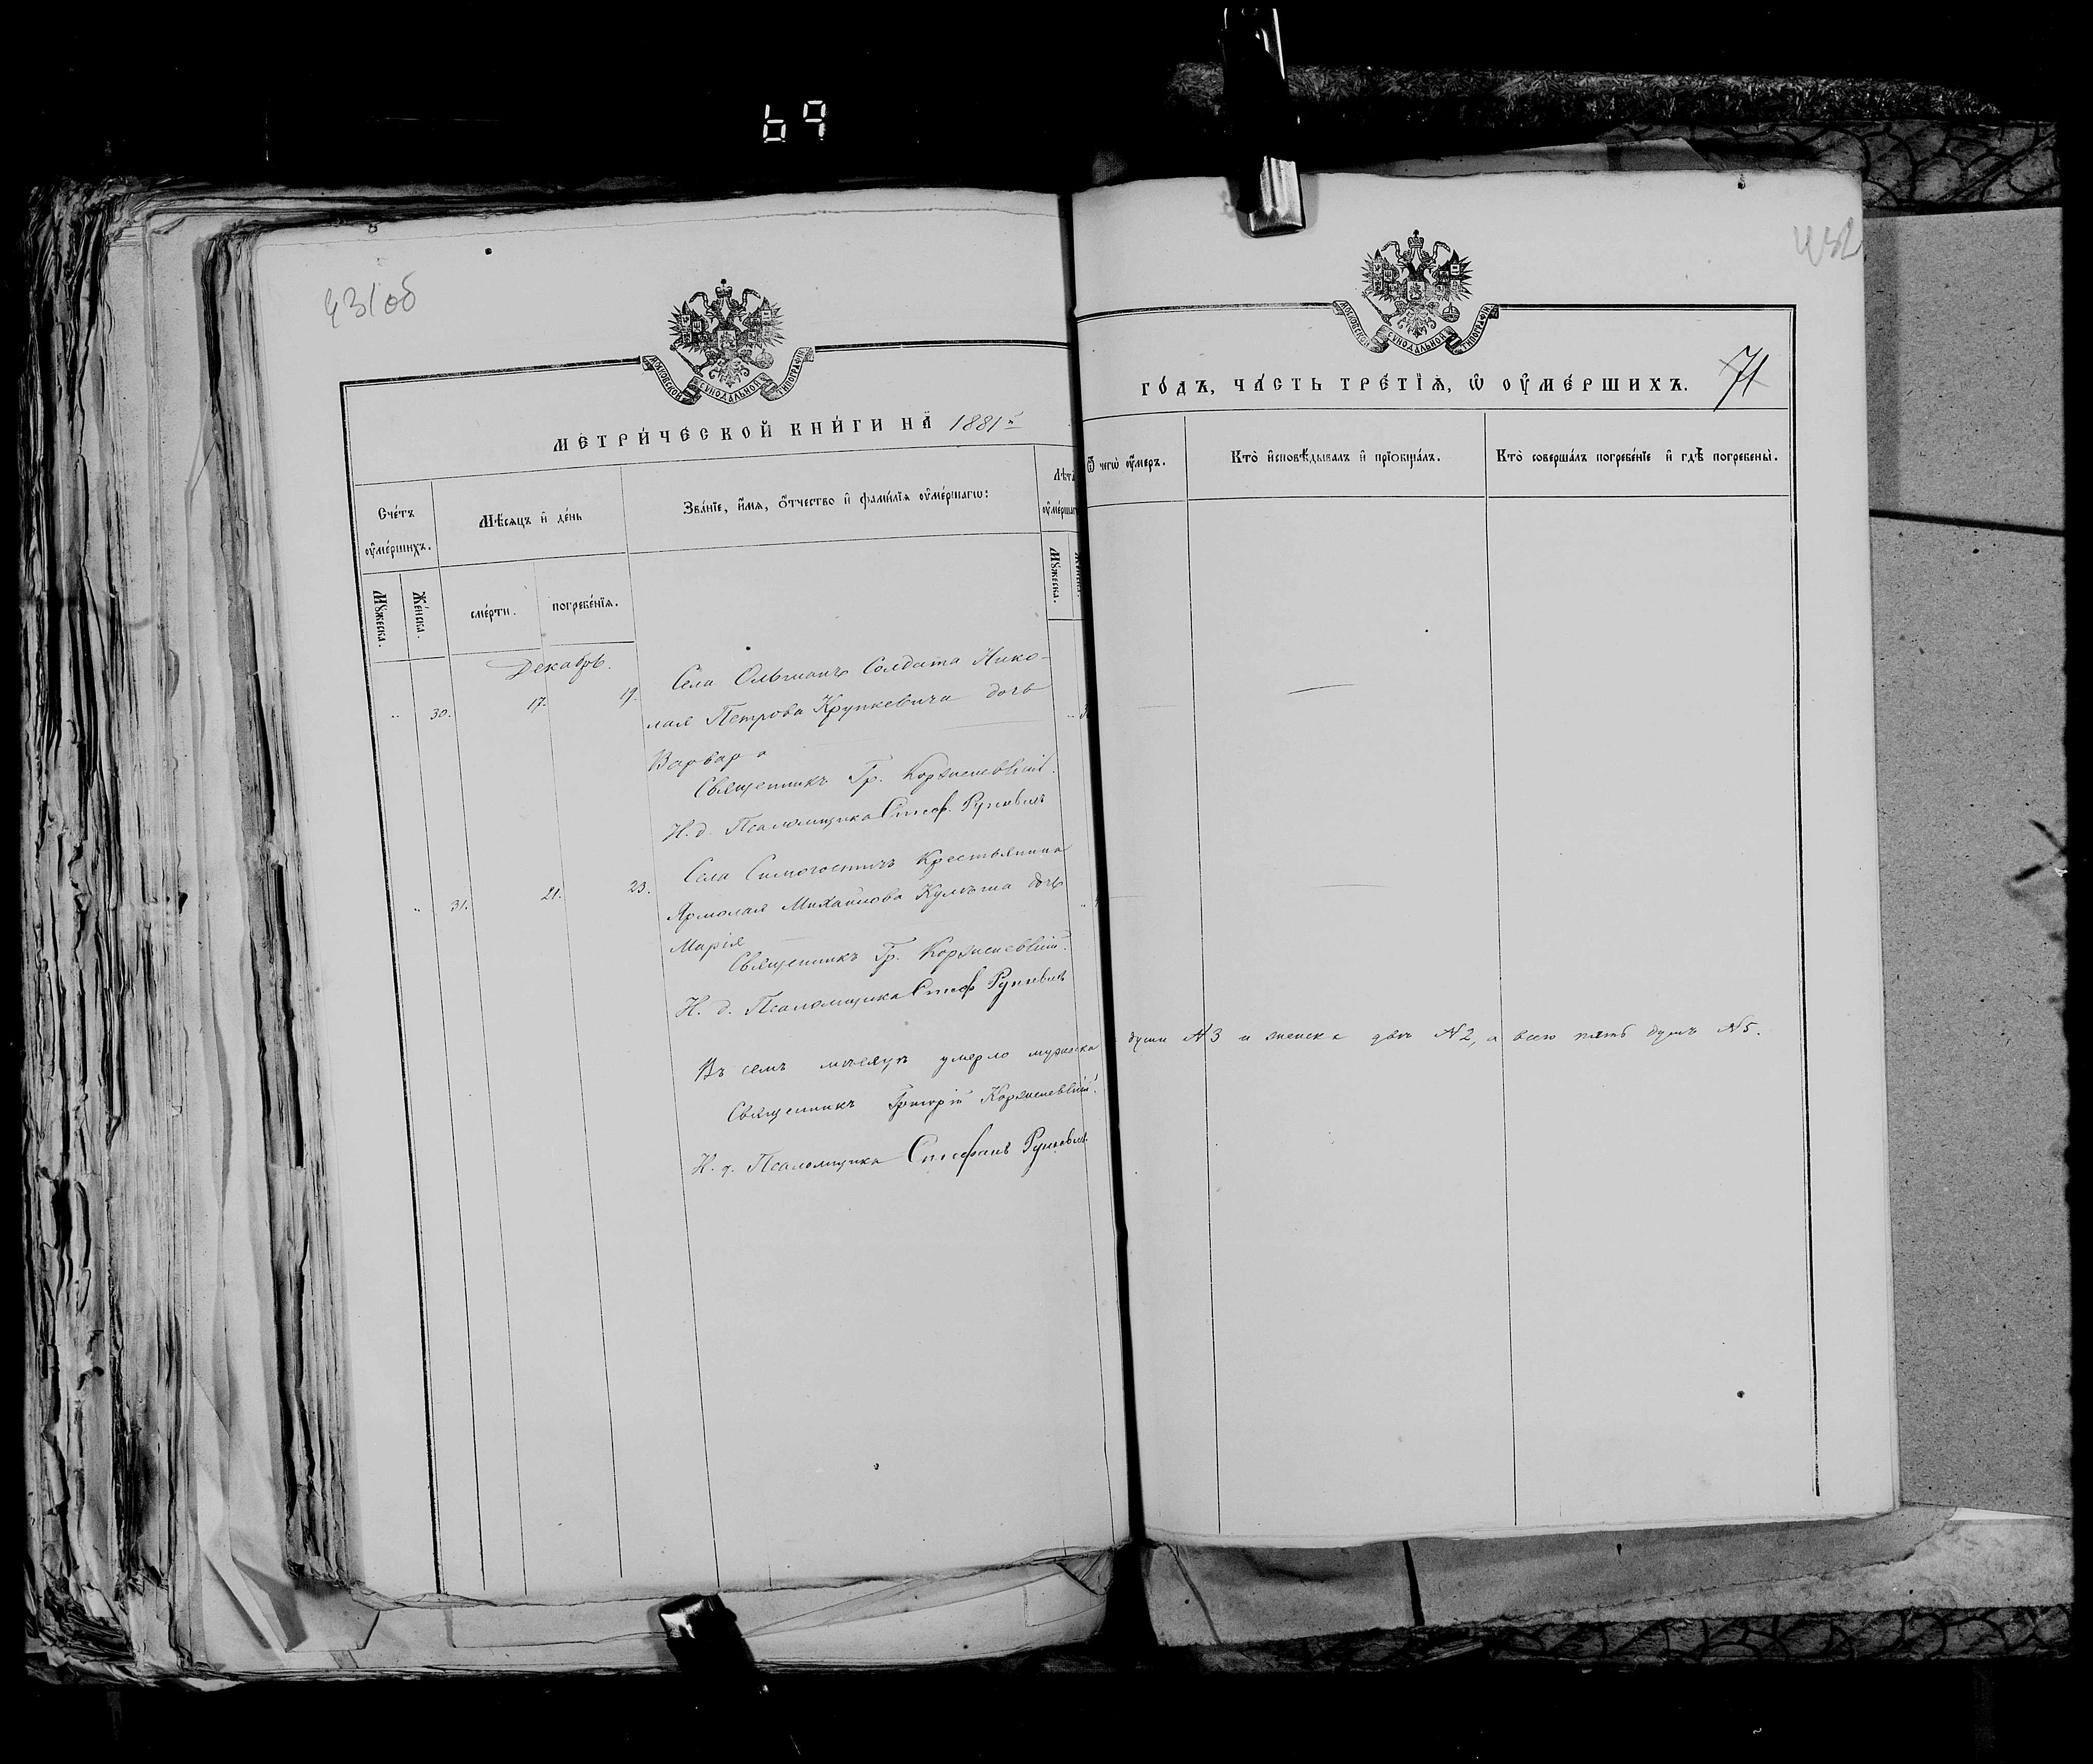 69
431об
432
МОСКОВСКОЙ СѴНОДАЛЬНОЙ ТИПОГРАФІИ
МОСКОВСКОЙ СѴНОДАЛЬНОЙ ТИПОГРАФІИ
МЕТРИ́ЧЕСКОЙ КНИ́ГИ НА̀ 1881й
ГО́ДЪ, ЧА́СТЬ ТРЕ́ТІѦ, Ѡ҆ ОУ҆МЕ́РШИХЪ. 71
Сче́тъ оу҆ме́ршихъ.
Мꙋ́жеска.
Же́нска.
Мѣ́сѧцъ и҆ де́нь
сме́рти.
погребе́нїѧ.
Зва́нїе, и҆́мѧ, ѻ҆́тчество и҆ фамі́лїѧ оу҆ме́ршагѡ:
Лѣта̀
Мꙋ́жеска.
Ѿ чегѡ̀ оу҆́меръ.
Кто̀ и҆сповѣ́дывалъ и҆ прїѡбща́лъ.
Кто̀ соверша́лъ погребе́нїе и҆ гдѣ̀ погребены̀.
Декабрь.
" 30. 17. 19. Села Ольманъ Солдата Нико-
лая Петрова Крупкевича дочь
Варвара
Священникъ Гр. Корженевскій.
И. д. Псаломщика Стеф. Рункевичъ
" 31. 21. 23. Села Симогостичъ Крестьянина
Ярмолая Михайлова дочь
Марія
Священникъ Гр. Корженевскій.
И. д. Псаломщика Стеф Рункевичъ
Въ семъ мѣсяцѣ умерло мужеска души №3 и женска двѣ №2, а всего пять душъ №5.
Священникъ Григорій Корженевскій.
И. д. Псаломщика Стефанъ Рункевичъ